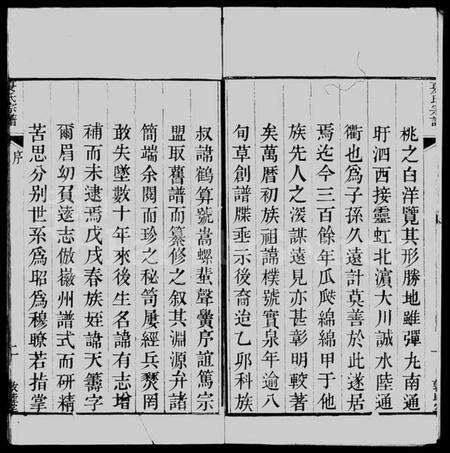 桃之白洋覽其形勝地雖彈丸南通
盱泗西接靈虹北濵大川誠水陸通
衢也爲子孫久遠計莫善於此遂居
焉迄今三百餘年瓜瓞綿綿甲于他
族先人之深謀遠見亦甚彰明較著
矣萬曆初族祖諱樸號實泉年逾八
旬草創譜牒垂示後裔迨乙卯科族
叔諱鶴算號嵩螺蜚聲黌序誼篤宗
盟取舊譜而纂修之叙其淵源弁諸
簡端余閱而珍之秘笥屢經兵燹罔
敢失墜數十年來後生名諱有志增
補而未逮焉戊戌春族姪諱天籌字
爾眉幼負遠志倣徽州譜式而硏精
苦思分别世系爲昭爲穆瞭若指掌
序
二